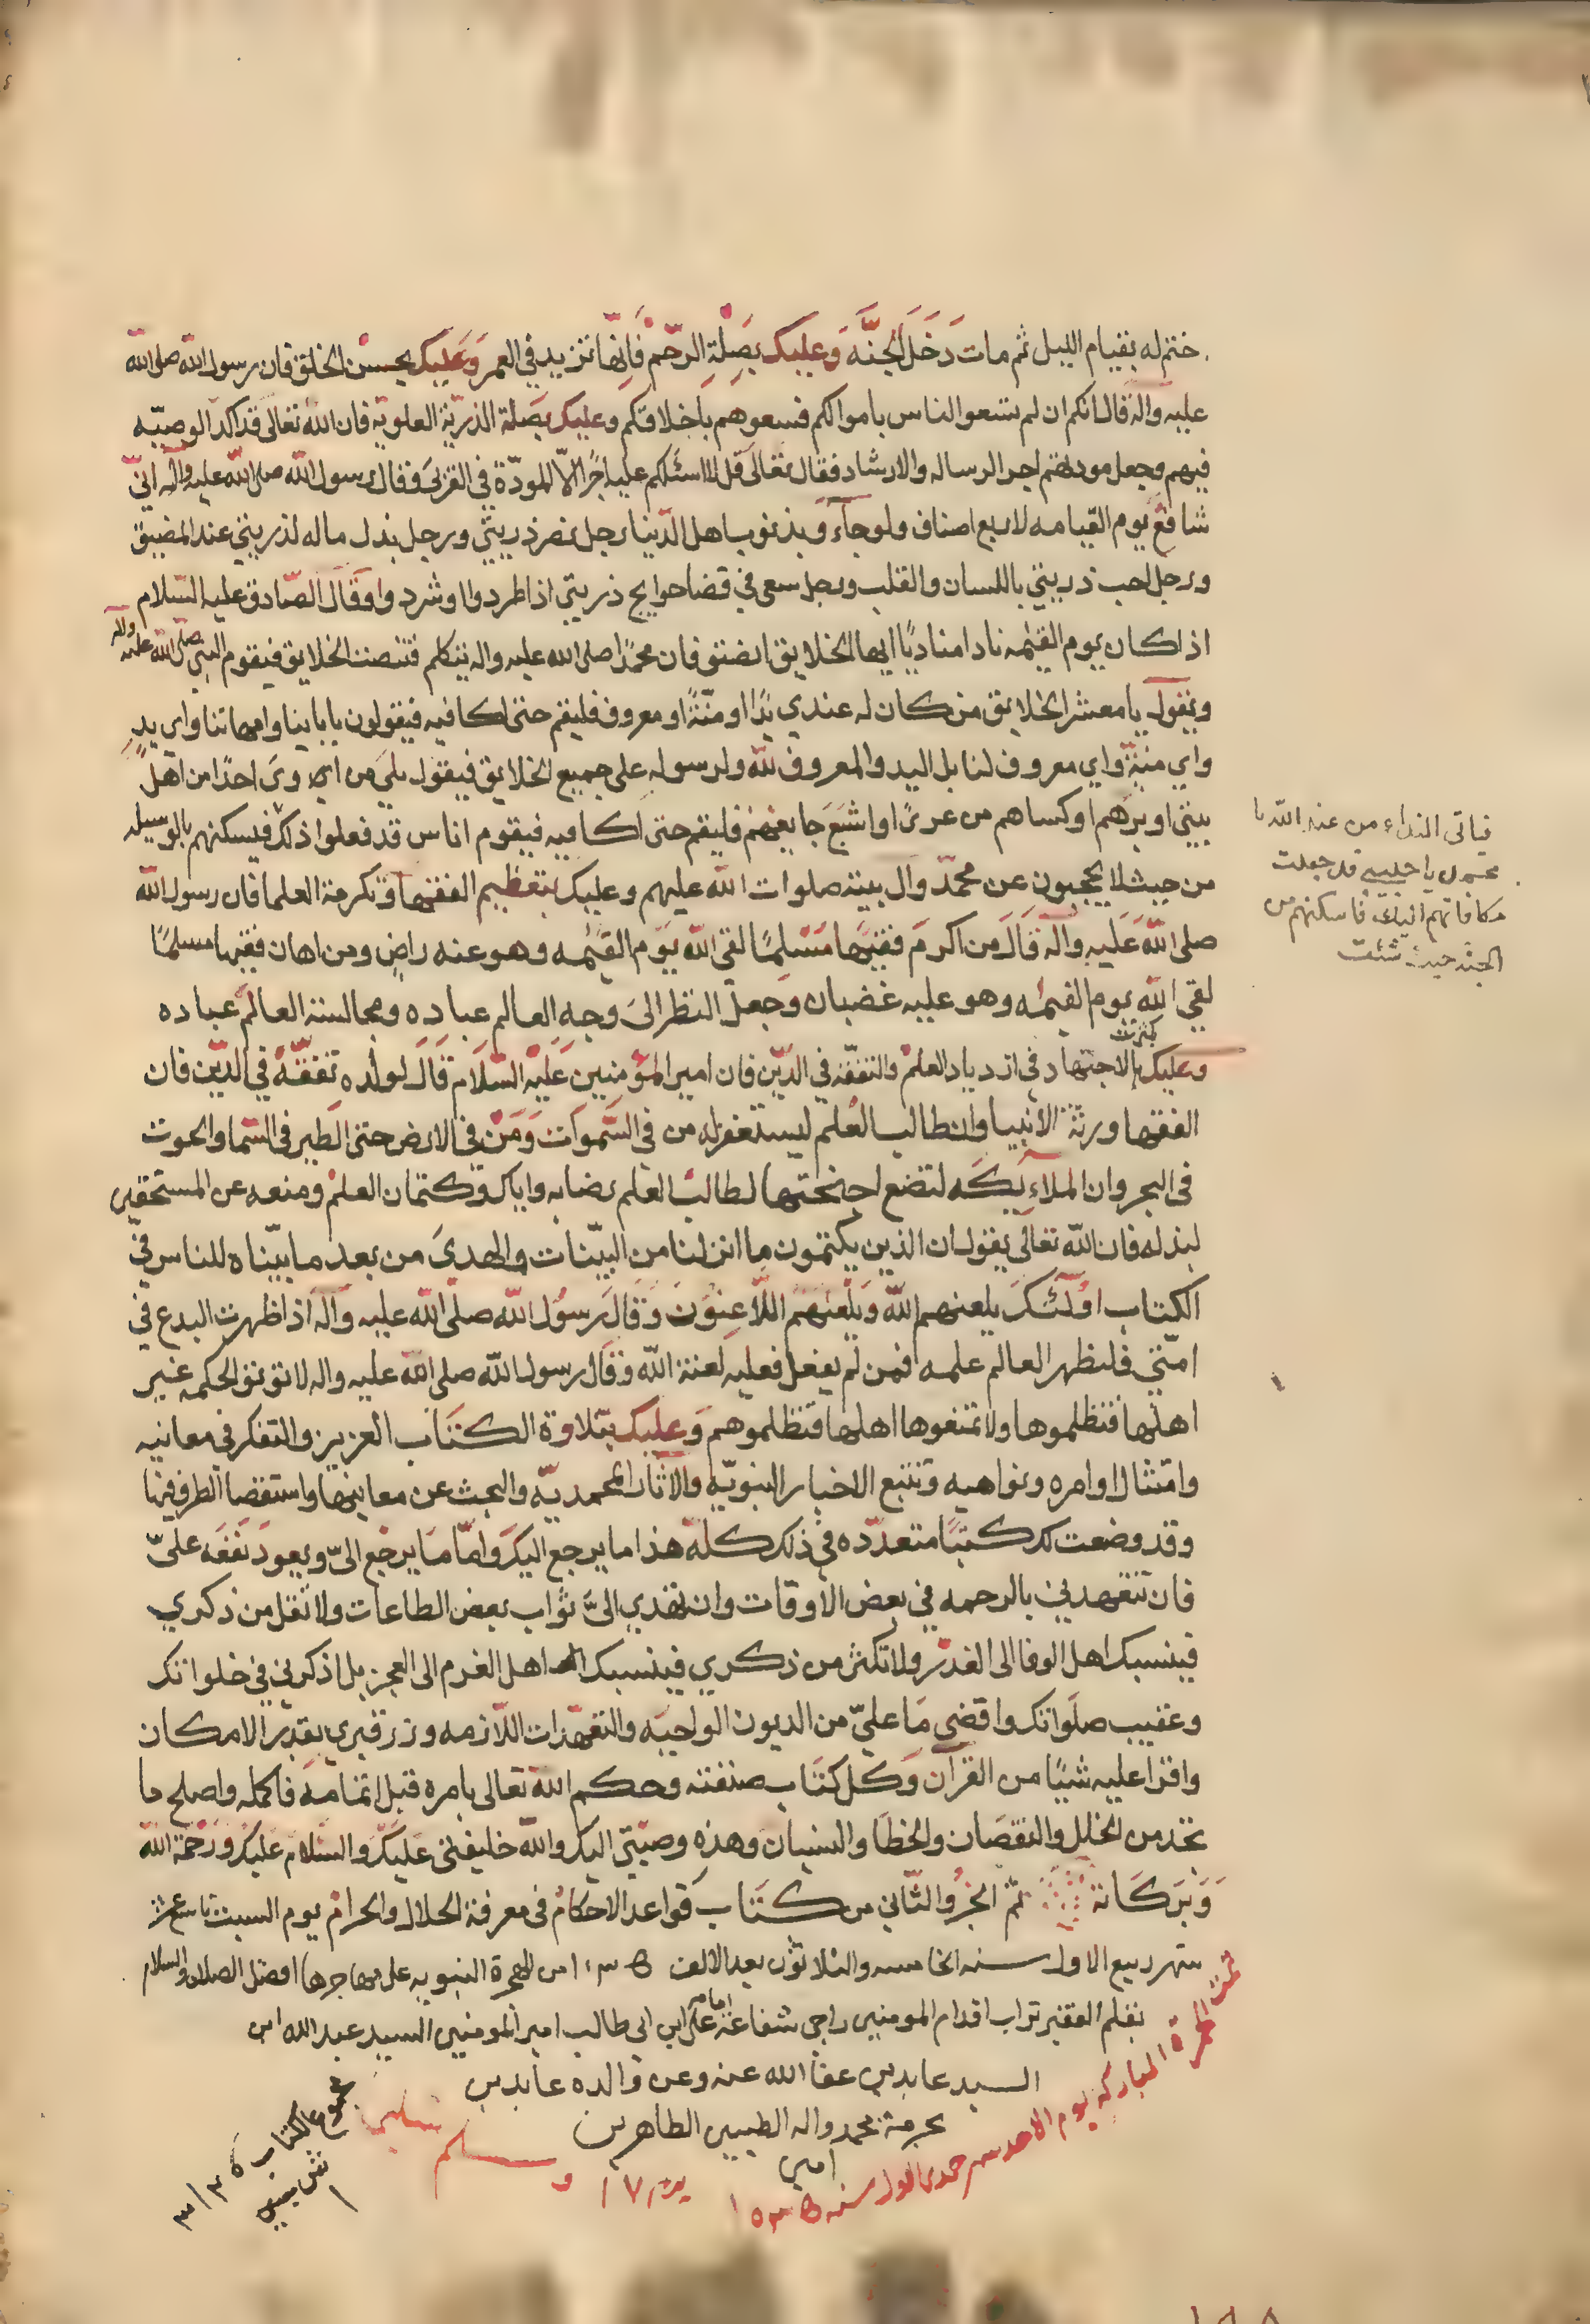 ختم له بقيام الليل ثم مات دَخَلَ الجَنَّة وَعليك بصِلَةِ الرحْم فَاِنّها تزيد في العمر وَعَليك بحسْن الخلق فان رسول الله صلى الله
عليه وآله قال انكم ان لم تسعوا الناس باموالكم فسعوهم بأخلاقكم وعليك بصَلة الذريّة العلويّة فان الله تعالى قد اكد الوصيّه
فيهم وجعل مودتهم اجر الرساله والارشاد فقال تعالى قل لا اسئلكم عليه اجرًا الاّ المودّة في القربَى وقال رسول الله صلى الله عليه وآله انّي
شافع يوم القيامه لاربع اصناف ولو جآءو بذنوب اهل الدّنيا رجل نصر ذريتي ورجل بذل ماله لذريتي عند المضيق
ورجل احب ذريتي باللسان والقلب ورجل سعى في قضا حوايج ذريتي اذا طردوا او شردوا وَقَالَ الصّادق عليه السّلام
اذا كان يوم القيٰمه نادا منادٍ يا ايها الخلايق انصتو فان محمدًا صلى الله عليه واله يتكلم فتنصت الخلايق فيقوم النبي صلى الله عليه وآله
ويَقول يا معشر الخلايق من كان له عندي يدًا او منّةً او معروف فليقم حتى اكافيه فيقولون بابآينا وامهاتنا واي يدٍ
واي منّةٍ واي معروف لنا بل اليد والمعروف للّه ولرسوله على جميع الخلايق فيقول بلىَ من اوىَ احدًا من اهل
بيتي او برّهم او كساهم من عرىً او اشبَعَ جايعهم فليقم حتى اكافيه فيقوم اناس قد فعلوا ذلك فيسكنهم بالوسيله
فياتى النداء من عند الله يا
محمد يا حبيبي قد جعلت
مكافاتهم اليك فاسكنهم من
الجنه حيث شئت
من حيث لا يحجبون عن محمّد وآل بيته صلوات الله عليهم وعليك بتعظيم الفقها وتكرمة العلما فان رسول الله
صلى الله عَلَيه وآله قَالَ من اكرَم فقيهًا مَسْلمًا لقى الله يَوم القيٰمه وهو عنه راضٍ ومن اهان فقيها مسلمًا
لقي الله يوم القيمٰه وهو عليه غضبان وَجعلَ النظر الىَ وجه العالم عباده ومجالسة العالم عباده
وعليك بكثرت الاجتهاد في ازدياد العلمْ والتفقّه في الدّين فان امير المؤمنيين عَليْه السّلَام قَالَ لولده تفقّهْ في الدّين فان
الفقها ورثة الانبيا وان طالب العُلم ليستغفر له من في السَّمواتَ وَمَنْ في الارض حتى الطّير في السّما والحوت
في البحر وان الملآيكَه لتضع اجنحتها لطالب العلم رضا به واياك وكتمان العلمْ ومنعه عن المستحقين
لبذله فان الله تعالى يقول ان الذين يكتمون ما انزلنا من البيّنات والهدىَ من بعد ما بيّناه للناس في
الكتاب اولَئكَ يلعنهم اللّه وَيلْعنُهم اللّاعِنونَ وَقَالَ رَسوُل الله صلّى الله عليه وآله اذا ظهرت البدع في
امّتي فليظهر العالم علمه فمن لم يفعل فعليه لعنة اللّه وَقال رسول اللّه صلى الله عليه واله لا توتو الحكمه غير
اهلها فتظلموها ولا تمنعوها اهلها فتظلموهم وَعليك بتلاوة الكتَاب العزيز والتفكر في معانيه
وامتثال اوامره ونواهيه وتتبع الاخبار النبويّه والآثار المحمديّه والبحث عن معانيها واستقصا النظر فيها
وقد وضعت لك كتبًا متعدّده في ذلك كله هذا ما يرجع اليكَ وَامّا مَا يرجَع الىّ ويعودَ نَفعَه علىّ
فان تتعهدني بالرحمه في بعض الاوقات وان تهدي الىَّ ثوَاب بعض الطاعات ولا تقل من ذكري
فينسبك اهل الوفا الى الغدْر ولا تكثر من ذكري فينسبك اهل الغرم الى العجز بل اذكرني في خلواتك
وعقيب صلَواتك واقضي مَا عليّ من الديون الواجبَه والتعهّدات اللّازمه وزر قبري بقدْر الامكان
واقرا عليه شيئًا من القرآن وَكل كتاب صنفته وحكم الله تعالى بامره قبل اتمامه فاكمله واصلح ما
تجد من الخلل والنقصَان والخطَا والنسيان وهذه وصيّتي اليك والله خليفتي عَليكَ والسّلام عَليكَ ورَحْمَة الله
وَبَركَاته تمّ الجزُؤ الثّاني من كتَاب قواعد الاحكامْ في معرفة الحلال والحرامْ يوم السبت تاسع عشر
شهر ربيع الاول سنه الخامسه والثلاثون بعد الالف ١٠٣٥ من الهجرة النبويه على مهاجرها افضل الصلاه والسلام
بقلم الفقير تراب اقدام المومنين راجى شفاعة امامه على ابن ابى طالب امير المومنين السيد عبد الله ابن
السيد عابدين عفا الله عنه وعن والده عابدين
بحرمة محمد واله الطيبين الطاهرين
امين
وسلم تسليما
تمت المباركه يوم الاحد شهر جمدى الاول سنه ١٠٣٥
مجموع الكتاب